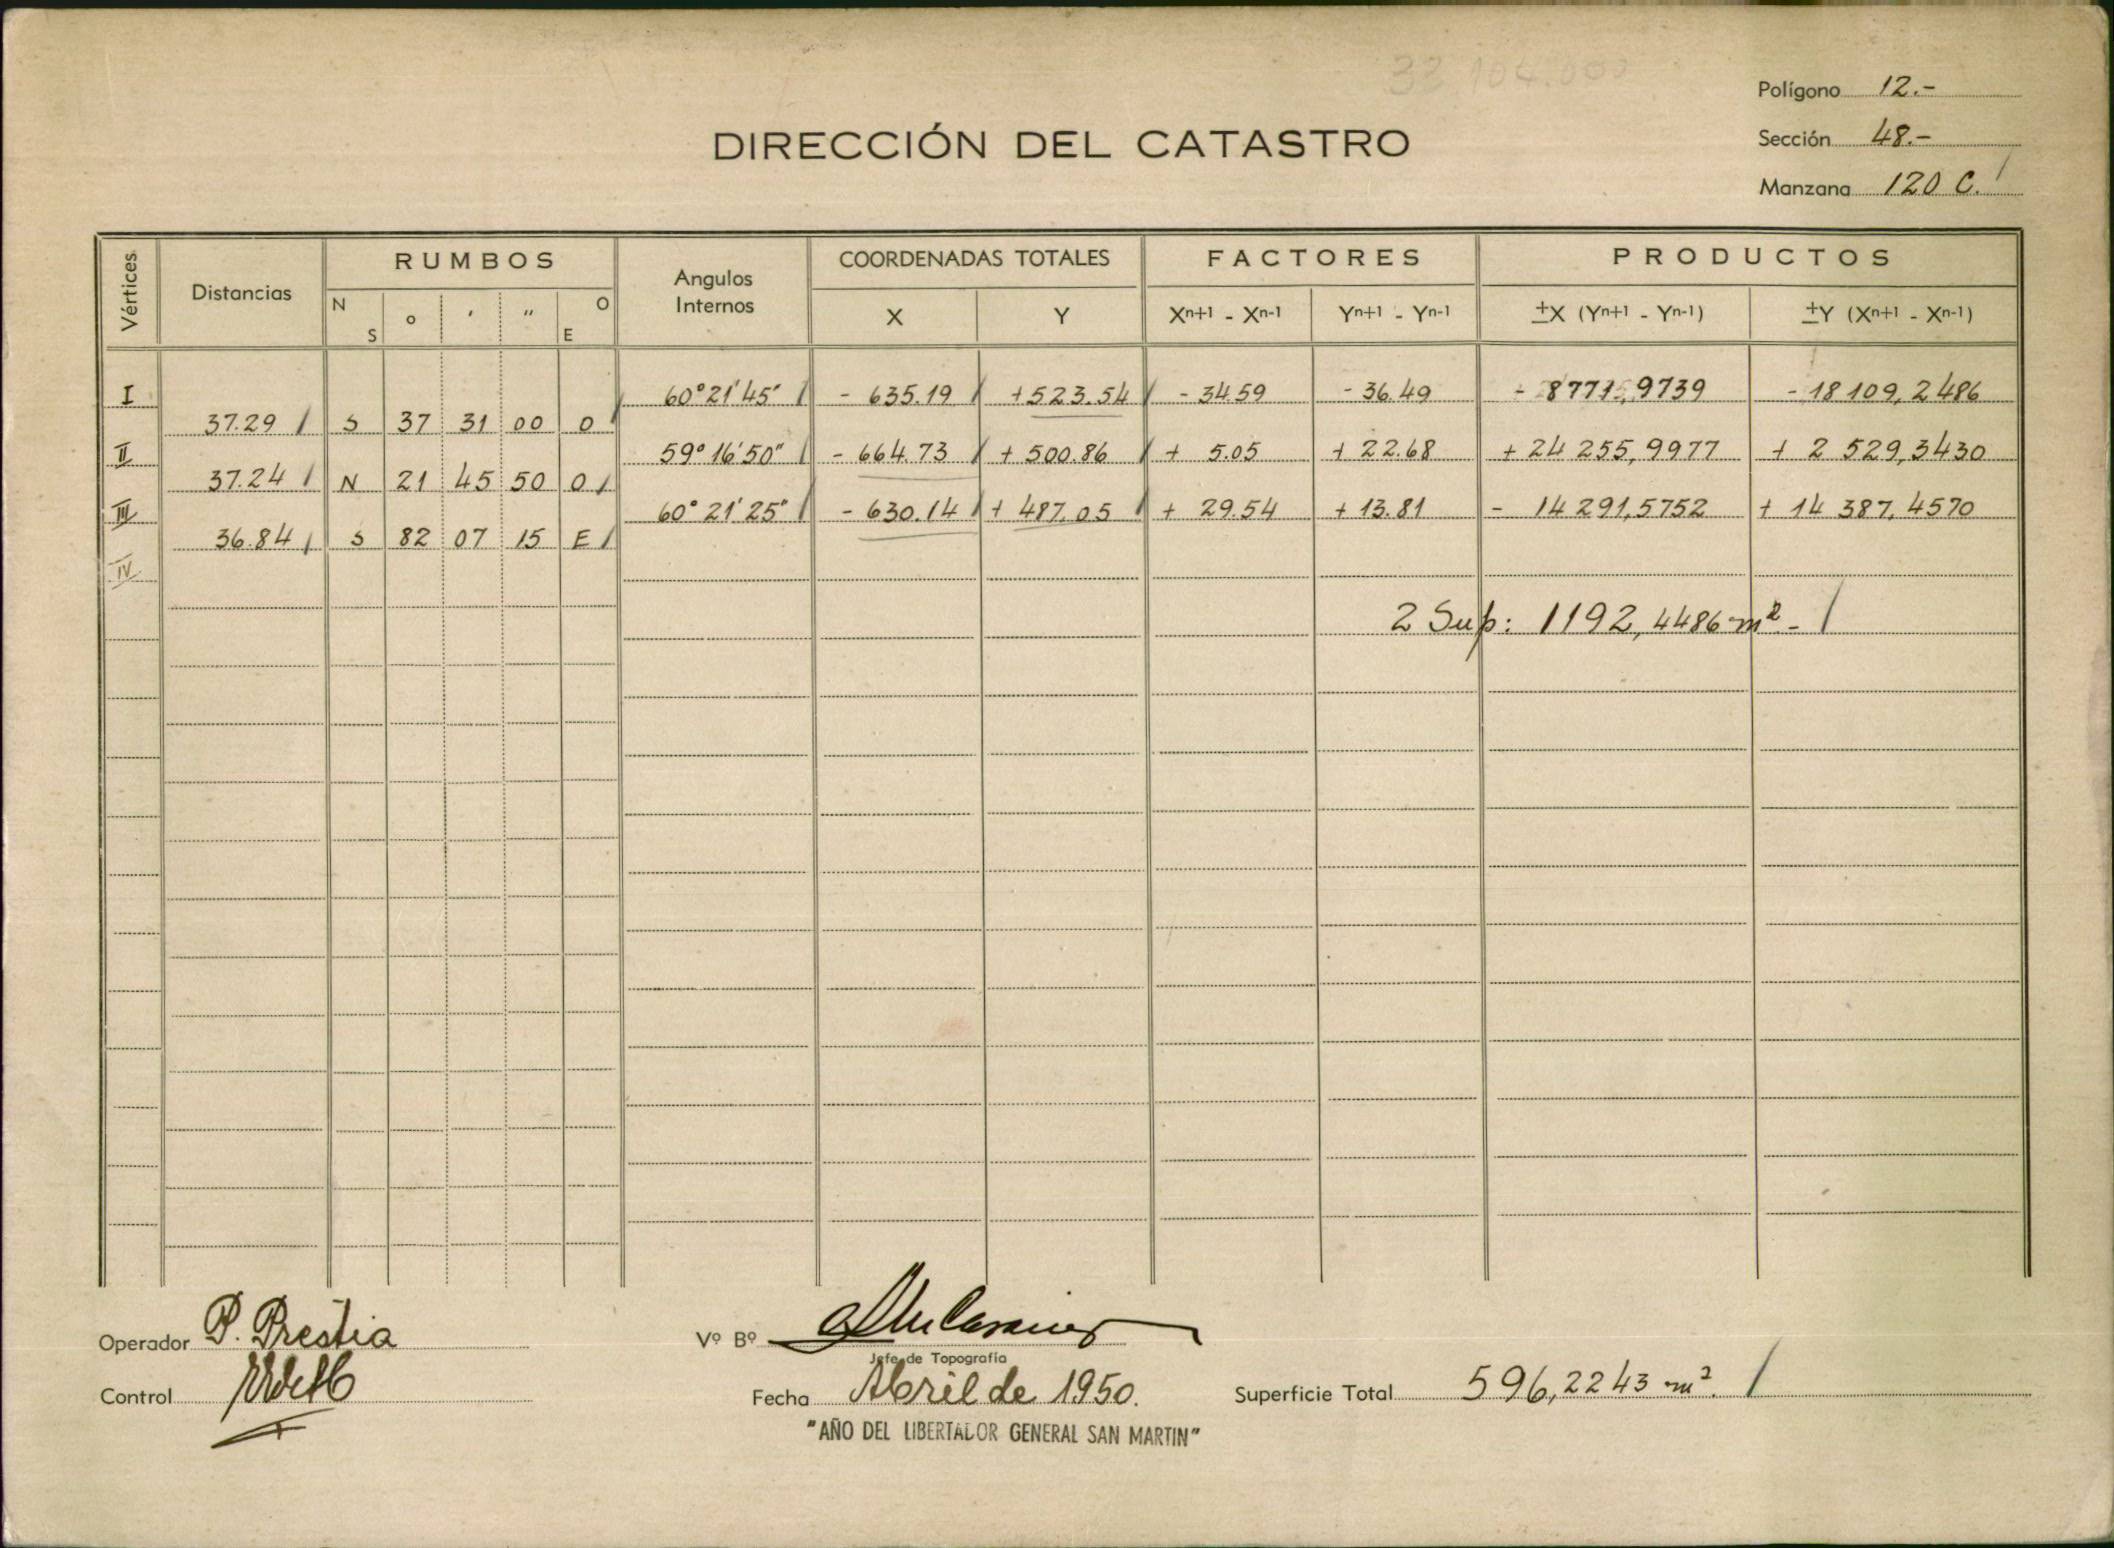 32 104.000
Polígono 12.-
DIRECCIÓN DEL CATASTRO
Sección 48.-
Manzana 120 C.
Vértices
Distancias
RUMBOS
N S
o
'
"
O E
Angulos Internos
COORDENADAS TOTALES
X
Y
FACTORES
Xn+1 - Xn-1
Yn+1 - Yn-1
PRODUCTOS
±X (Yn+1 - Yn-1)
±Y (Xn+1 - Xn-1)
I 60°21'45" - 635.19 +523.54 - 34.59 - 36.49 - 8771,9739 - 18 109,2486
37.29 S 37 31 00 O
II 59°16'50" - 664.73 + 500.86 + 5.05 + 22.68 + 24 255,9977 + 2 529,3430
37.24 N 21 45 50 O
III 60°21'25" - 630.14 + 487.05 + 29.54 + 13.81 - 14 291,5752 + 14 387,4570
36.84 S 82 07 15 E
IV
2 Sup: 1192,4486 m² -
Operador P. Prestia
Vº Bº
Jefe de Topografía
Control
Fecha Abril de 1950.
Superficie Total 596,2243 m².
"AÑO DEL LIBERTADOR GENERAL SAN MARTIN"